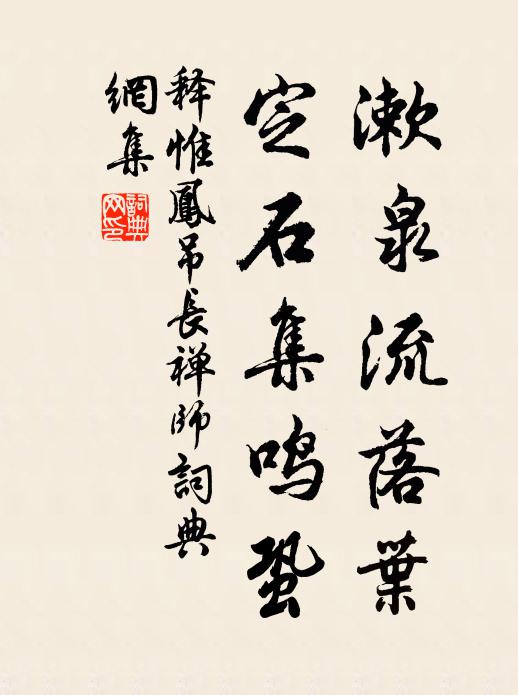 漱泉流落葉
定石集鳴蛩
释惟鳳吊長禅師詞典
網集
詞典
网印